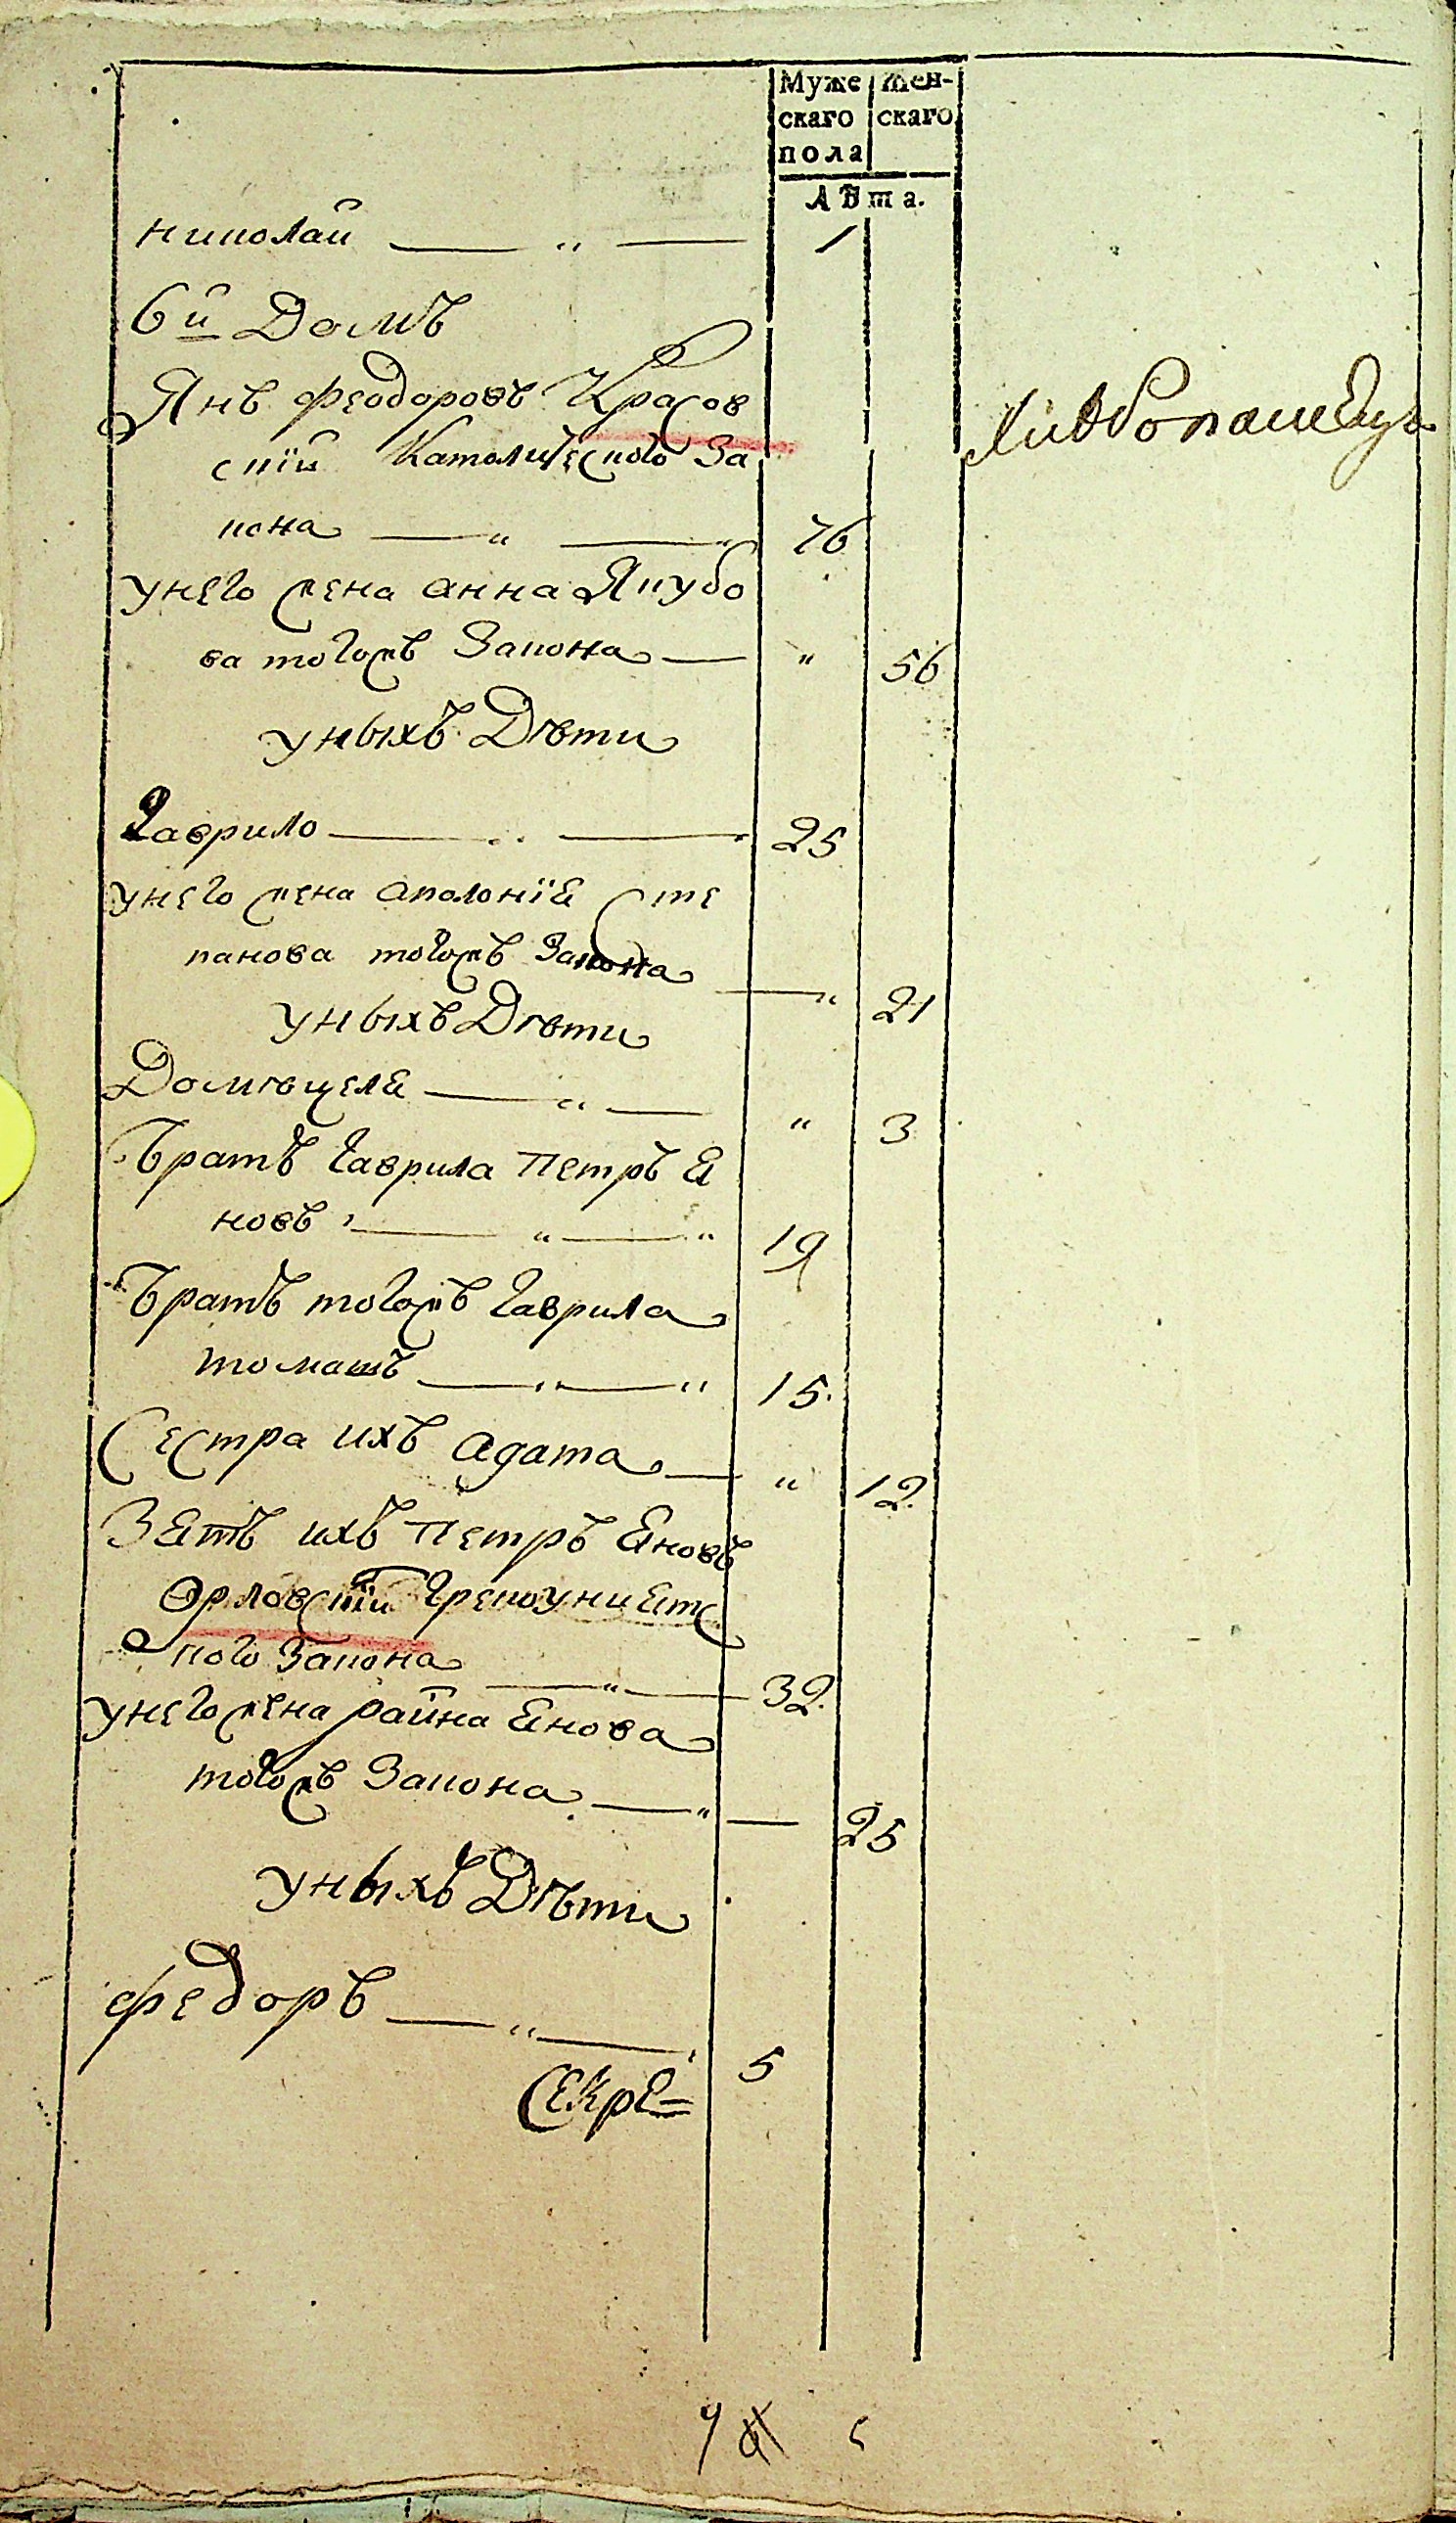 Муже Жен-
скаго скаго
пола
Лѣта.
николай — „ — 1
6й Домъ
Янъ Феодоровъ Красов
скiй Католического За
кона — „ — 76
унего жена анна Якубо
ва тогожъ Закона — „ 56
уныхъ Дѣти
Гаврило — 25
унего жена аполонiя Сте
панова тогожъ Закона — „ 21
уныхъ Дѣти
Домицеля — „ — „ 3
Братъ Гаврила Петръ Я
новъ — „ — „ 19
Братъ тогожъ Гаврила
томашъ — „ — „ 15.
Сестра ихъ агата — „ 12.
Зять ихъ Петръ Яновъ
Орловскiй Грекоуниятс
кого Закона — „ — 32.
унего жена райна Янова
тогожъ Закона — „ — 25
уныхъ Дѣти
федоръ — „ — 5
Секре=
9